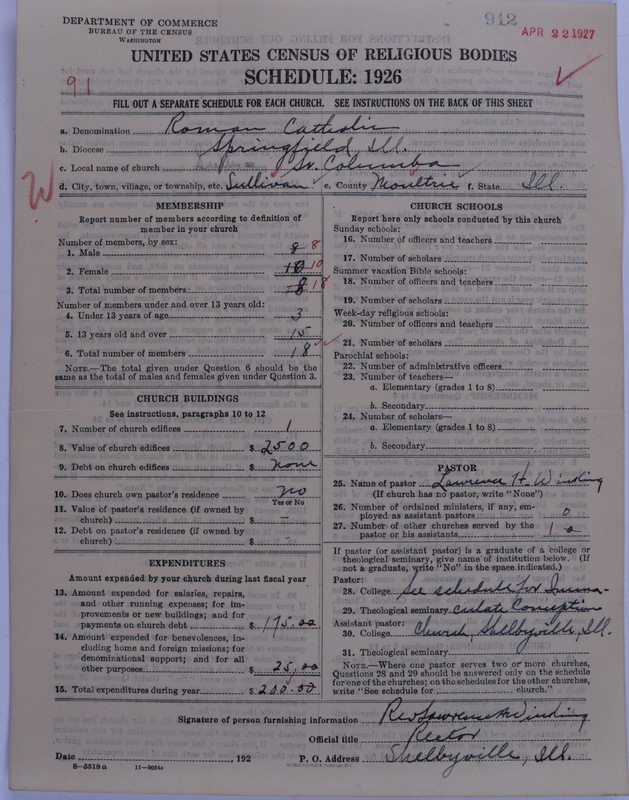 DEPARTMENT OF COMMERCE
BUREAU OF THE CENSUS
WASHINGTON
912
APR 22 1927
UNITED STATES CENSUS OF RELIGIOUS BODIES
SCHEDULE: 1926
91
FILL OUT A SEPARATE SCHEDULE FOR EACH CHURCH. SEE INSTRUCTIONS ON THE BACK OF THIS SHEET
a. Denomination Roman Catholic
b. Diocese Springfield, Ill.
c. Local name of church St. Columba
W
d. City, town, village, or township, etc. Sullivan e. County Moultrie f. State Ill.
MEMBERSHIP
Report number of members according to definition of
member in your church
Number of members, by sex:
1. Male 8 8
2. Female 10 10
3. Total number of members 8 18
Number of members under and over 13 years old:
4. Under 13 years of age 3
5. 13 years old and over 15
6. Total number of members 18
NOTE.—The total given under Question 6 should be
same as the total of males and females given under Question 3.
CHURCH BUILDINGS
See instructions, paragraphs 10 to 12
7. Number of church edifices 1
8. Value of church edifices $ 2500
9. Debt on church edifices $ none
10. Does church own pastor's residence no
Yes or No
11. Value of pastor's residence (if owned by
church) $ —
12. Debt on pastor's residence (if owned by
church) $ -
EXPENDITURES
Amount expended by your church during last fiscal year
13. Amount expended for salaries, repairs,
and other running expenses; for im-
provements or new buildings; and for
payments on church debt $ 175.00
14. Amount expended for benevolences, in-
cluding home and foreign missions; for
denominational support; and for all
other purposes $ 25.00
15. Total expenditures during year $ 200.00
CHURCH SCHOOLS
Report here only schools conducted by this church
Sunday schools:
16. Number of officers and teachers
17. Number of scholars
Summer vacation Bible schools:
18. Number of officers and teachers
19. Number of scholars
Week-day religious schools:
20. Number of officers and teachers
21. Number of scholars
Parochial schools:
22. Number of administrative officers
23. Number of teachers—
a. Elementary (grades 1 to 8)
b. Secondary
24. Number of scholars—
a. Elementary (grades 1 to 8)
b. Secondary
PASTOR
25. Name of pastor Lawrence H. Winking
(If church has no pastor, write "None")
26. Number of ordained ministers, if any, em-
ployed as assistant pastors 0
27. Number of other churches served by the
pastor or his assistants 1
If pastor (or assistant pastor) is a graduate of a college or
theological seminary, give name of institution below. (If
not a graduate, write "No" in the space indicated.)
Pastor:
28. College See schedule for Imma-
29. Theological seminary culate Conception
Assistant pastor:
30. College Church, Shelbyville, Ill.
31. Theological seminary
NOTE.—Where one pastor serves two or more churches,
Questions 28 and 29 should be answered only on the schedule
for one of the churches; on the schedules for the other churches,
write "See schedule for church."
Signature of person furnishing information Rev Lawrence H Winking
Official title Rector
Date , 192 P. O. Address Shelbyville, Ill.
8—5518a 11—9054